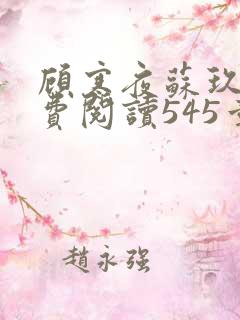 顧寒夜蘇玖
費閱讀545
趙永強